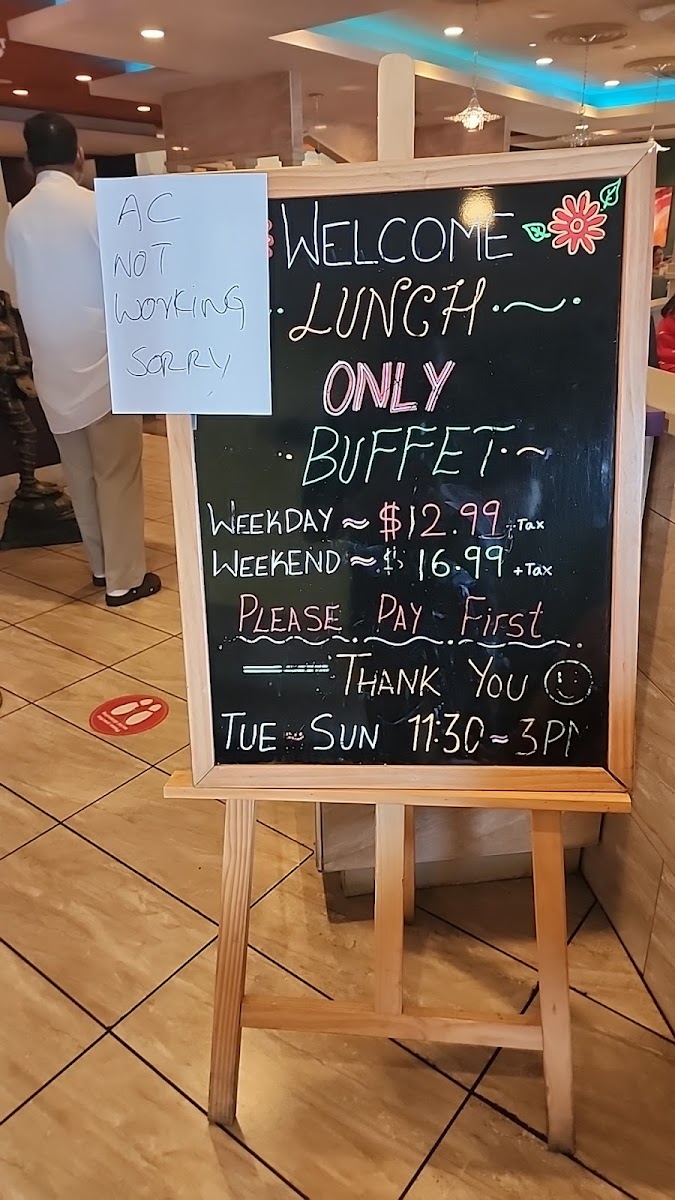 AC
NOT
WORKING
SORRY
WELCOME
LUNCH
ONLY
BUFFET
WEEKDAY ≈ $12.99 +Tax
WEEKEND ≈ $ 16.99 +Tax
PLEASE PAY First
THANK YOU
TUE - SUN 11:30 ≈ 3PM